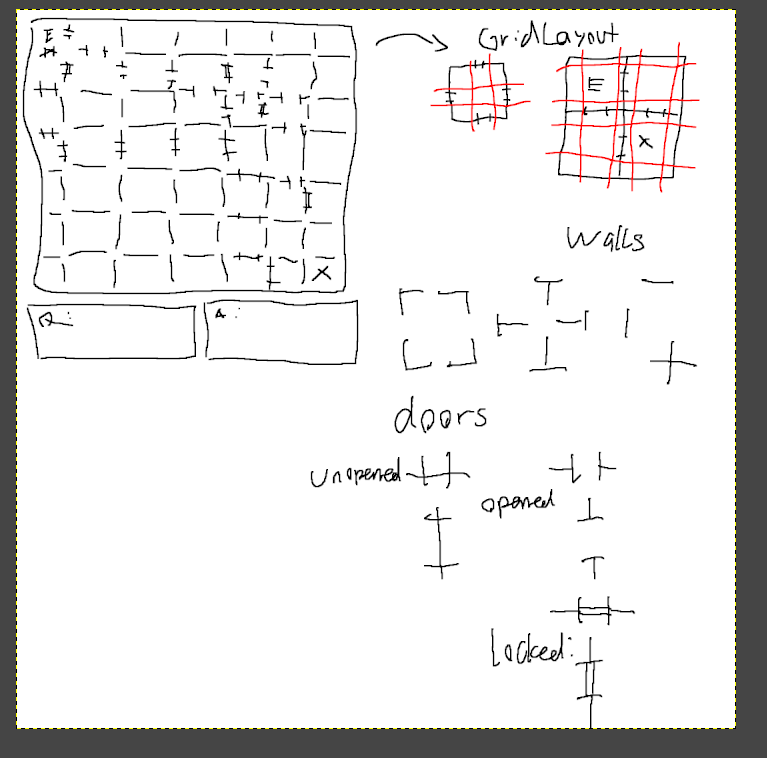 GridLayout
E
E
X
Walls
X
Q:
A:
doors
Unopened
opened
Locked: